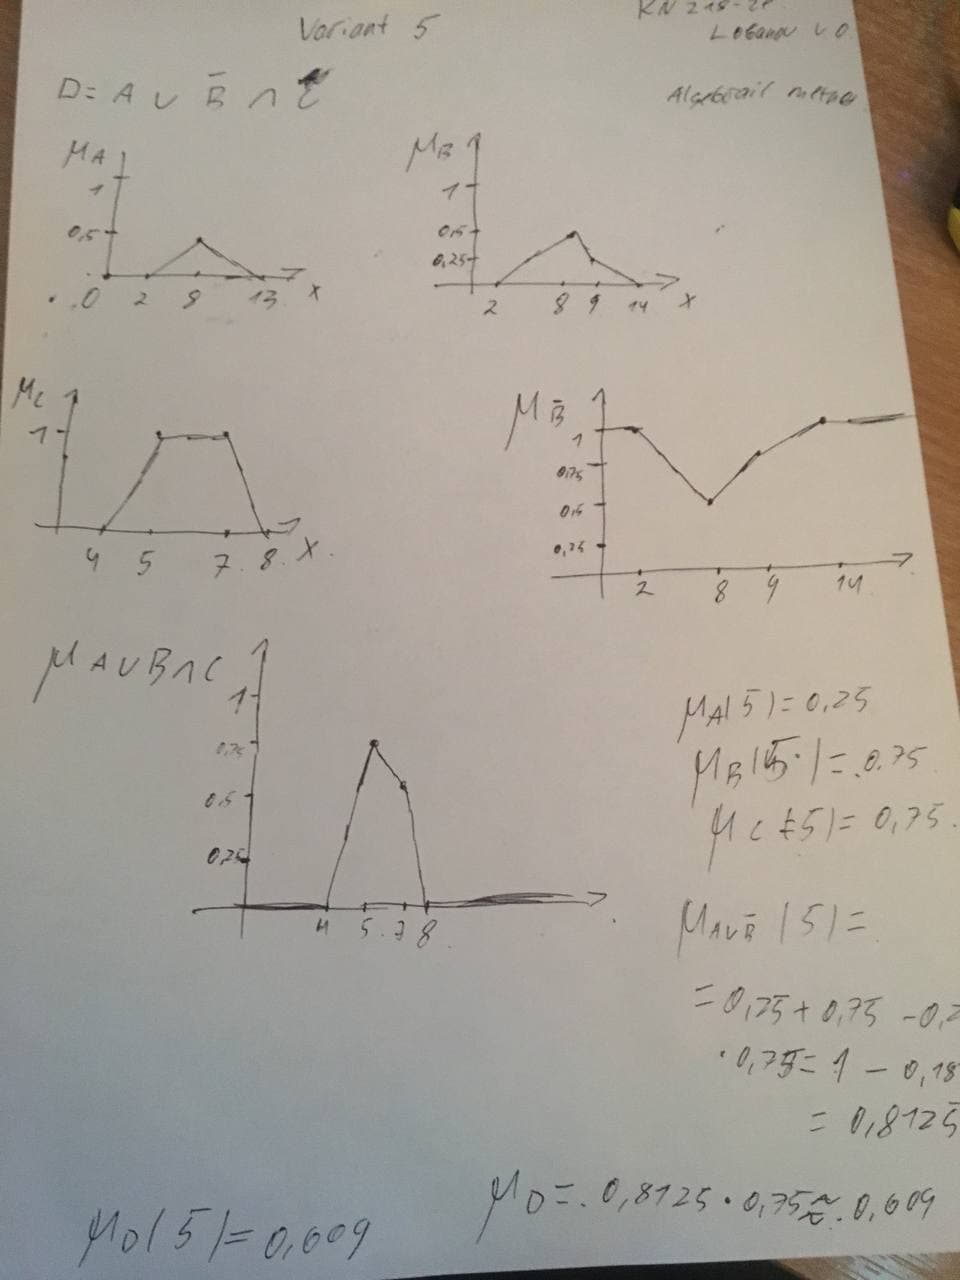 Variant 5
KN 218-
D = A ∪ B̄ ∩ C
Algebrail
μA
1
0,5
0 2 8 13 x
μB
1
0,5
0,25
2 8 9 14 x
μC
1
4 5 7 8 x
μB̄
1
0,75
0,5
0,25
2 8 9 14
μA∪B∩C
1
0,75
0,5
0,25
4 5 7 8
μA(5) = 0,25
μB̄(5) = 0.75
μC(5) = 0,75
μA∪B̄(5) =
= 0,25 + 0,75 - 0,2
· 0,75 = 1 - 0,18
= 0,8125
μD = 0,8125 · 0,75 ≈ 0,609
μD(5) = 0,609